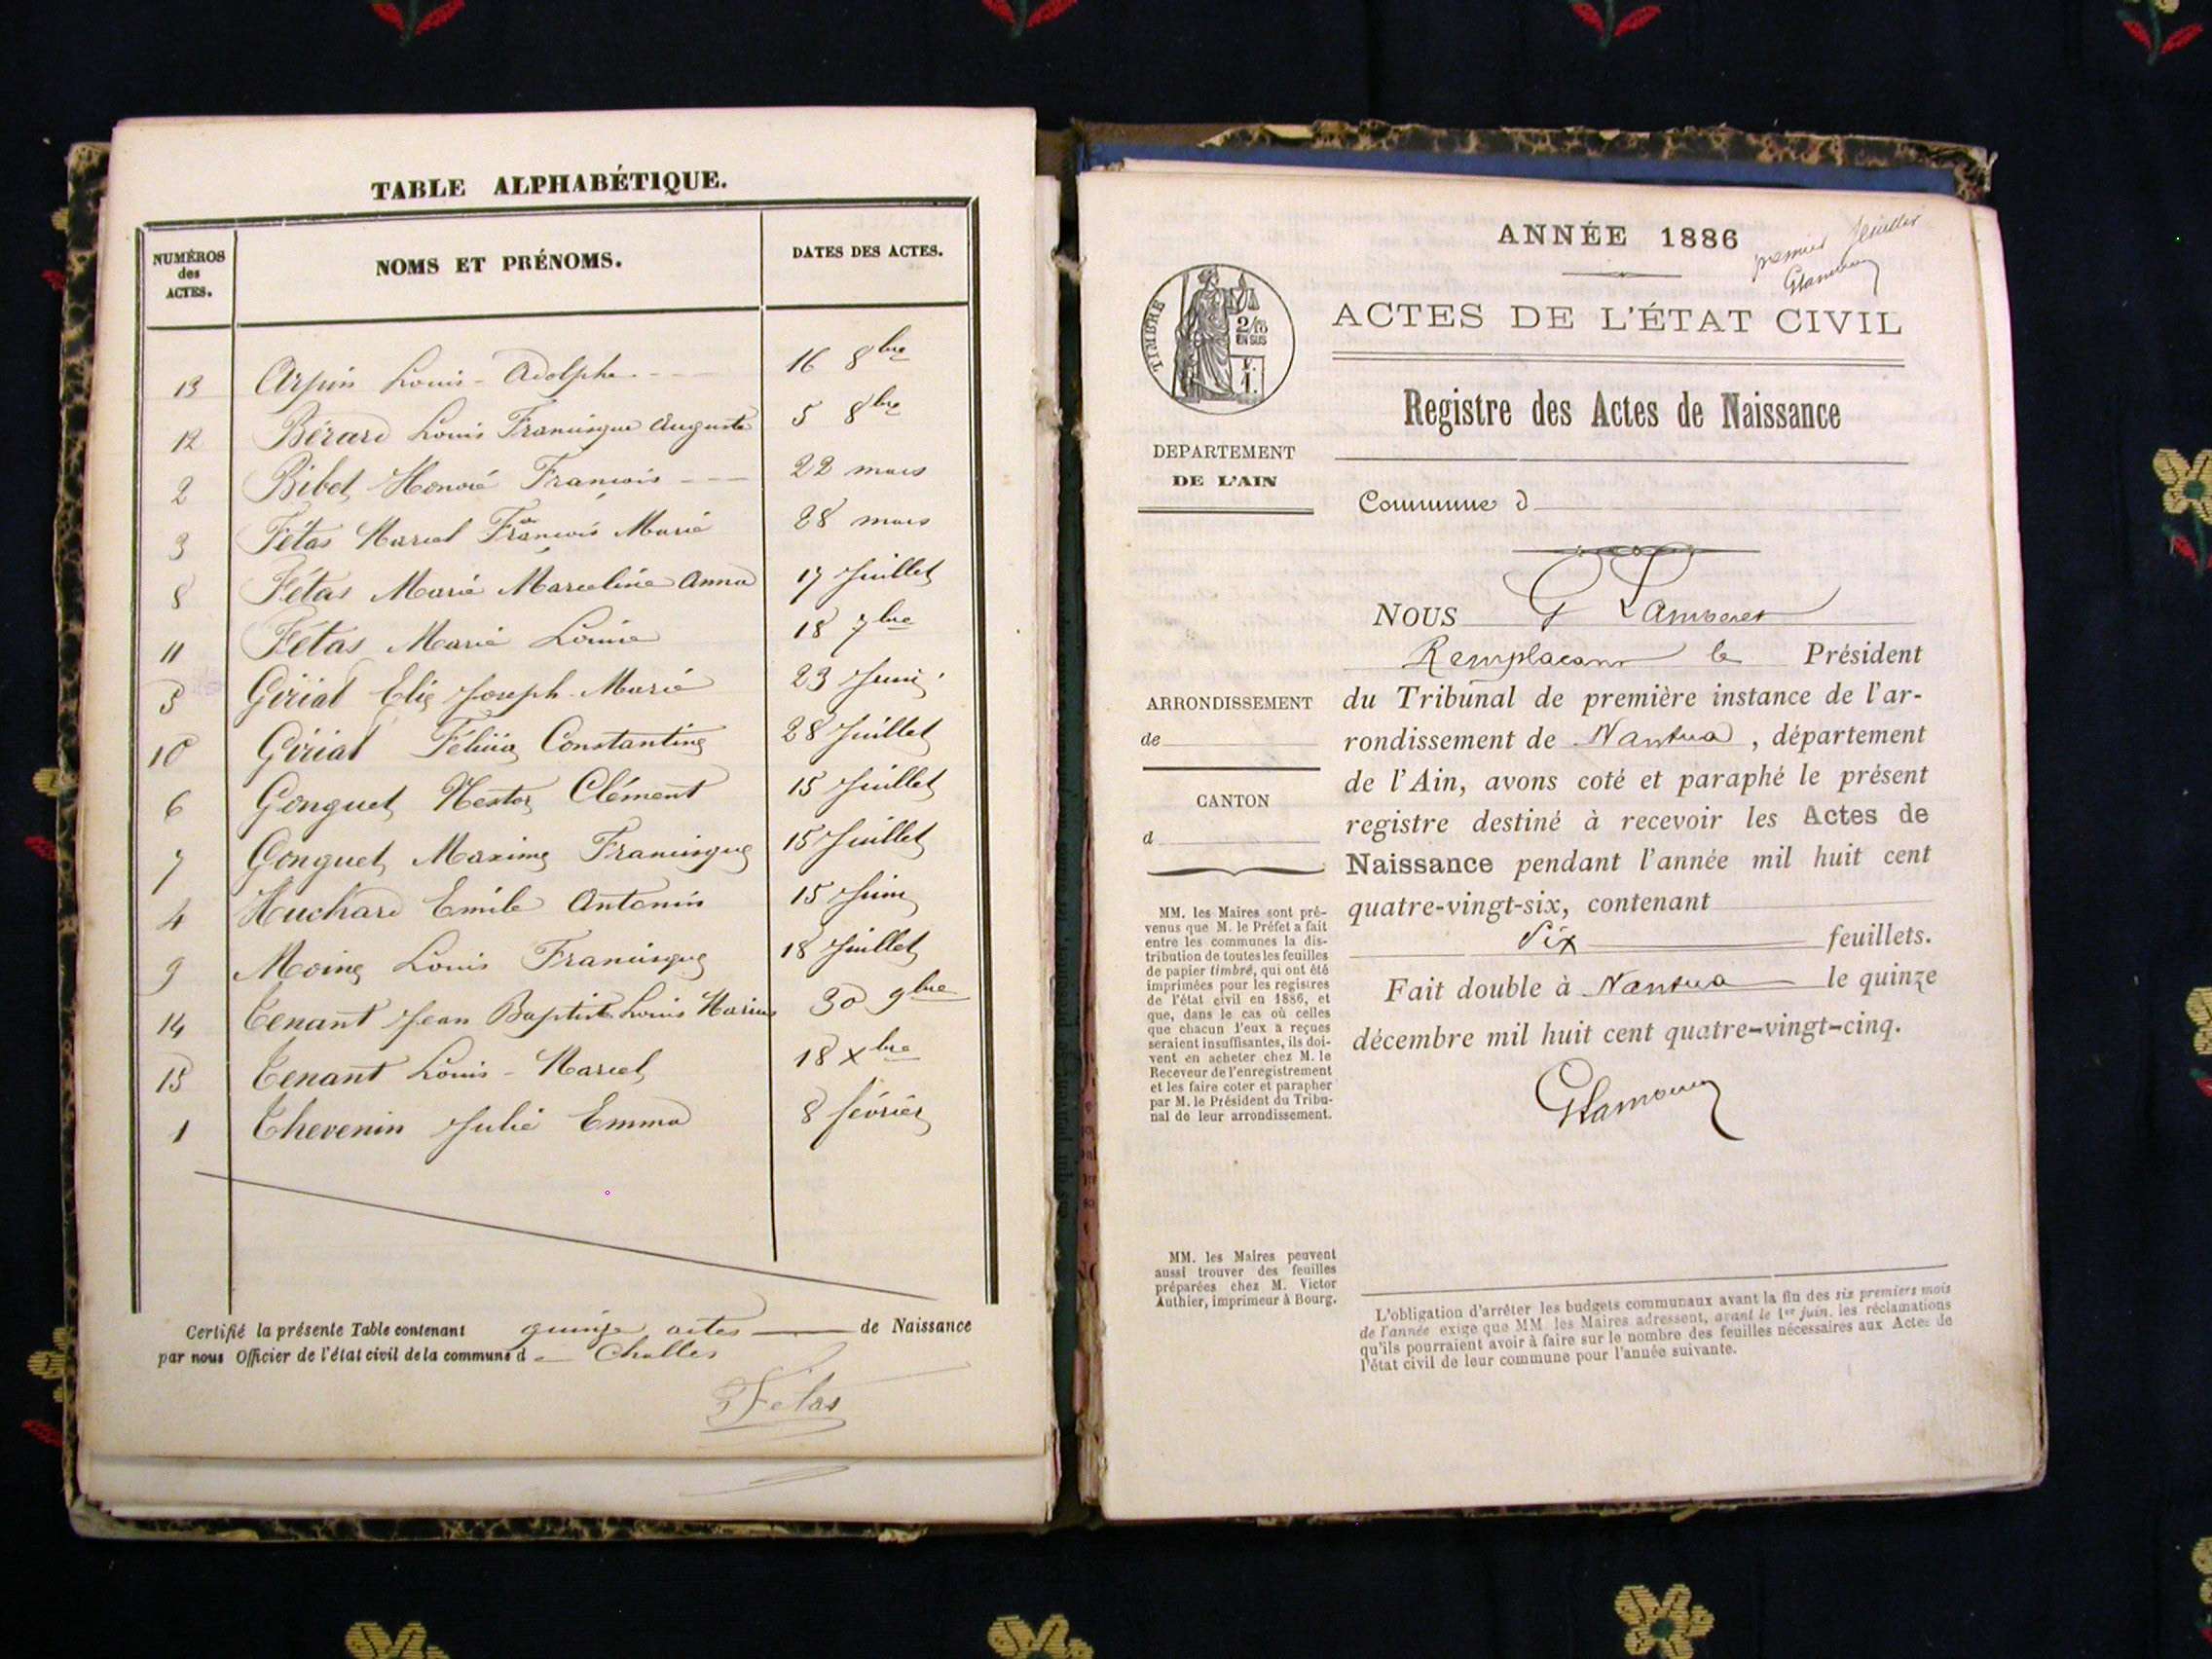 TABLE ALPHABÉTIQUE.
NUMÉROS des ACTES. NOMS ET PRÉNOMS. DATES DES ACTES.
13 Arpin Louis-Adolphe 16 8bre
12 Bérard Louis Francisque Auguste 5 8bre
2 Bibet Honoré François 22 mars
3 Fétas Marcel François Marie 28 mars
8 Fétas Marie Marceline Anna 17 Juillet
11 Fétas Marie Louise 18 7bre
5 Giriat Elie Joseph-Marie 23 Juin
10 Giriat Félicia Constantine 28 Juillet
6 Gonguet Nestor Clément 15 Juillet
7 Gonguet Maxime Francisque 15 Juillet
4 Huchard Emile Antonin 15 Juin
9 Moine Louis Francisque 18 Juillet
14 Tenant Jean Baptiste Louis Marius 30 9bre
15 Tenant Louis-Marcel 18 xbre
1 Thevenin Julie Emma 8 février
Certifié la présente Table contenant quinze actes de Naissance
par nous Officier de l'état civil de la commune d Challes
Fétas
ANNÉE 1886
premier feuillet
ACTES DE L'ÉTAT CIVIL
TIMBRE
2/10
EN SUS
Registre des Actes de Naissance
DEPARTEMENT
DE L'AIN
Commune d
NOUS G Lamberet
Remplaçant le Président
ARRONDISSEMENT
de
du Tribunal de première instance de l'ar-
rondissement de Nantua, département
de l'Ain, avons coté et paraphé le présent
registre destiné à recevoir les Actes de
Naissance pendant l'année mil huit cent
quatre-vingt-six, contenant
Six feuillets.
Fait double à Nantua le quinze
décembre mil huit cent quatre-vingt-cinq.
CANTON
d
MM. les Maires sont pré-
venus que M. le Préfet a fait
entre les communes la dis-
tribution de toutes les feuilles
de papier timbré, qui ont été
imprimées pour les registres
de l'état civil en 1886, et
que, dans le cas où celles
que chacun d'eux a reçues
seraient insuffisantes, ils doi-
vent en acheter chez M. le
Receveur de l'enregistrement
et les faire coter et parapher
par M. le Président du Tribu-
nal de leur arrondissement.
MM. les Maires peuvent
aussi trouver des feuilles
préparées chez M. Victor
Authier, imprimeur à Bourg.
L'obligation d'arrêter les budgets communaux avant la fin des six premiers mois
de l'année exige que MM. les Maires adressent, avant le 1er juin, les réclamations
qu'ils pourraient avoir à faire sur le nombre des feuilles nécessaires aux Actes de
l'état civil de leur commune pour l'année suivante.